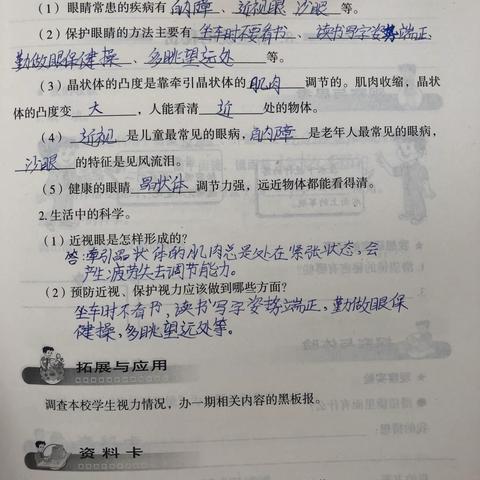 (1)眼睛常患的疾病有白内障、近视眼 沙眼等。
(2)保护眼睛的方法主要有坐车时不要看书、读书写字姿势端正、
勤做眼保健操、多眺望远处等。
(3)晶状体的凸度是靠牵引晶状体的肌肉调节的。肌肉收缩,晶状
体的凸度变大,人能看清近处的物体。
(4)近视是儿童最常见的眼病,白内障是老年人最常见的眼病,
沙眼的特征是见风流泪。
(5)健康的眼睛晶状体调节力强,远近物体都能看得清。
2.生活中的科学。
(1)近视眼是怎样形成的?
答:牵引晶状体的肌肉总是处在紧张状态,会
产生疲劳失去调节能力。
(2)预防近视、保护视力应该做到哪些方面?
坐车时不看书,读书写字姿势端正,勤做眼保
健操,多眺望远处等。
拓展与应用
调查本校学生视力情况,办一期相关内容的黑板报。
资料卡